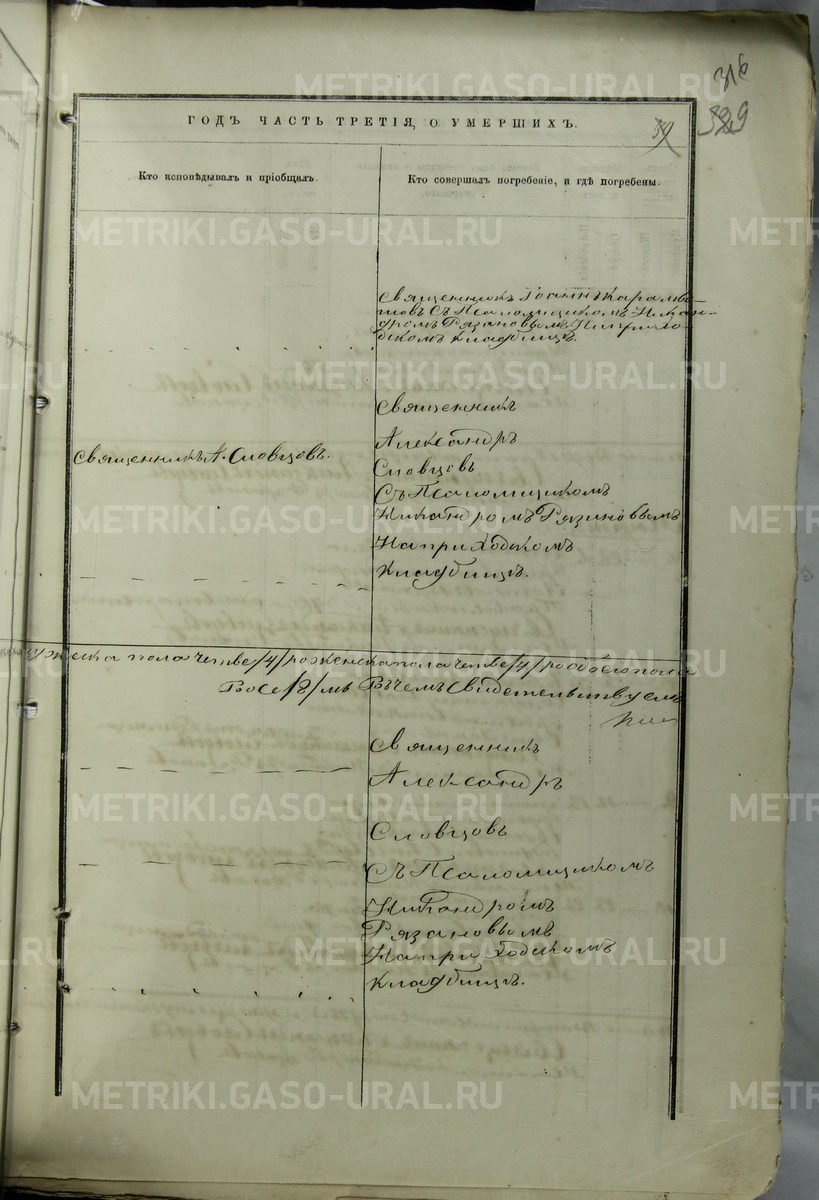 316
329
59
ГОДЪ ЧАСТЬ ТРЕТІЯ, О УМЕРШИХЪ.
Кто исповѣдывалъ и пріобщалъ.
Кто совершалъ погребеніе, и гдѣ погребены.
Священникъ Іоаннъ
товъ Съ Псаломщикомъ Никан-
дромъ Рязановымъ На прихо-
дскомъ кладбищѣ.
Священникъ
Александръ
Священникъ А. Словцовъ.
Словцовъ
Съ Псаломщикомъ
Никандромъ Рязановымъ
На приходскомъ
кладбищѣ.
мужеска пола четве/4/ро женска пола четве/4/ро обоего пола
Восе/8/мь Въ чемъ Свидетельствуемъ
Священникъ
Александръ
Словцовъ
Съ Псаломщикомъ
Никандромъ
Рязановымъ
На приходскомъ
кладбищѣ.
METRIKI.GASO-URAL.RU